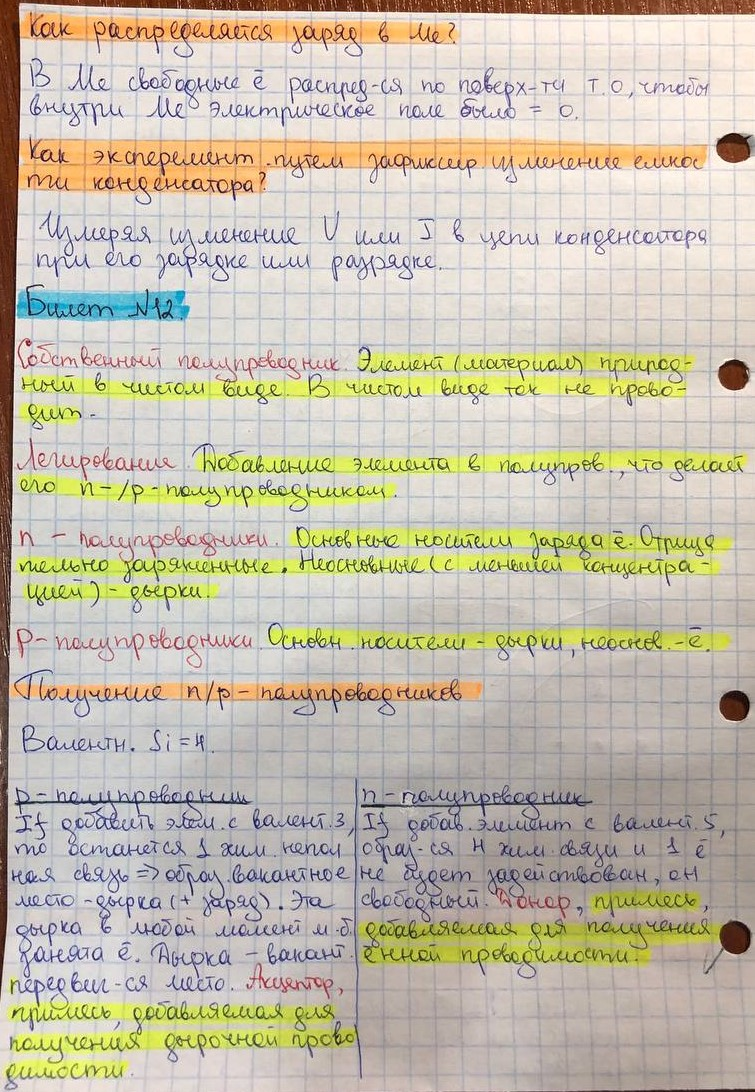 Как распределяется заряд в Ме?
В Ме свободные ē распред-ся по поверх-ти т.о, чтобы
внутри Ме электрическое поле было = 0.
Как эксперемент. путем зафиксир изменение емкос
ти конденсатора?
Измеряя изменение U или I в цепи конденсатора
при его зарядке или разрядке.
Билет №12.
Собственный полупроводник. Элемент (материал) природ-
ный в чистом виде. В чистом виде ток не прово-
дит.
Легирование. Добавление элемента в полупров., что делает
его n-/p-полупроводником.
n - полупроводники. Основные носители заряда ē. Отрица
тельно заряженные. Неосновные (с меньшей концентра-
цией) - дырки.
P- полупроводники. Основн. носители - дырки, неоснов. - ē.
Получение n/p - полупроводников
Валентн. Si = 4.
p - полупроводник
If добавить элем. с валент. 3,
то останется 1 хим. непол
ная связь => образ. вакантное
место - дырка (+ заряд). Эта
дырка в любой момент м.б.
занята ē. Дырка - вакант.
передвиг-ся место. Акцептор,
примесь, добавляемая для
получения дырочной прово
димости.
n - полупроводник
If добав. элемент с валент. 5,
образ-ся 4 хим. связи и 1 ē
не будет задействован, он
свободный. Донор, примесь,
добавляемая для получения
ē-нной проводимости.